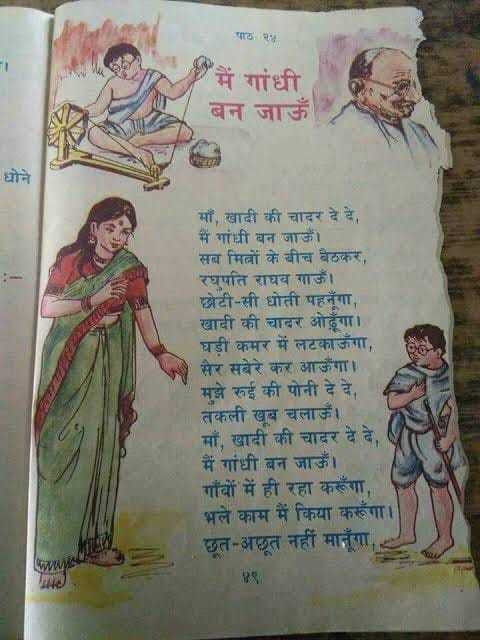 पाठ २४
मैं गांधी
बन जाऊँ
।
धोने
:-
माँ, खादी की चादर दे दे,
मैं गांधी बन जाऊँ।
सब मित्रों के बीच बैठकर,
रघुपति राघव गाऊँ।
छोटी-सी धोती पहनूँगा,
खादी की चादर ओढूँगा।
घड़ी कमर में लटकाऊँगा,
सैर सबेरे कर आऊँगा।
मुझे रुई की पोनी दे दे,
तकली खूब चलाऊँ।
माँ, खादी की चादर दे दे,
मैं गांधी बन जाऊँ।
गाँवों में ही रहा करूँगा,
भले काम मैं किया करूँगा।
छूत-अछूत नहीं मानूँगा,
४९